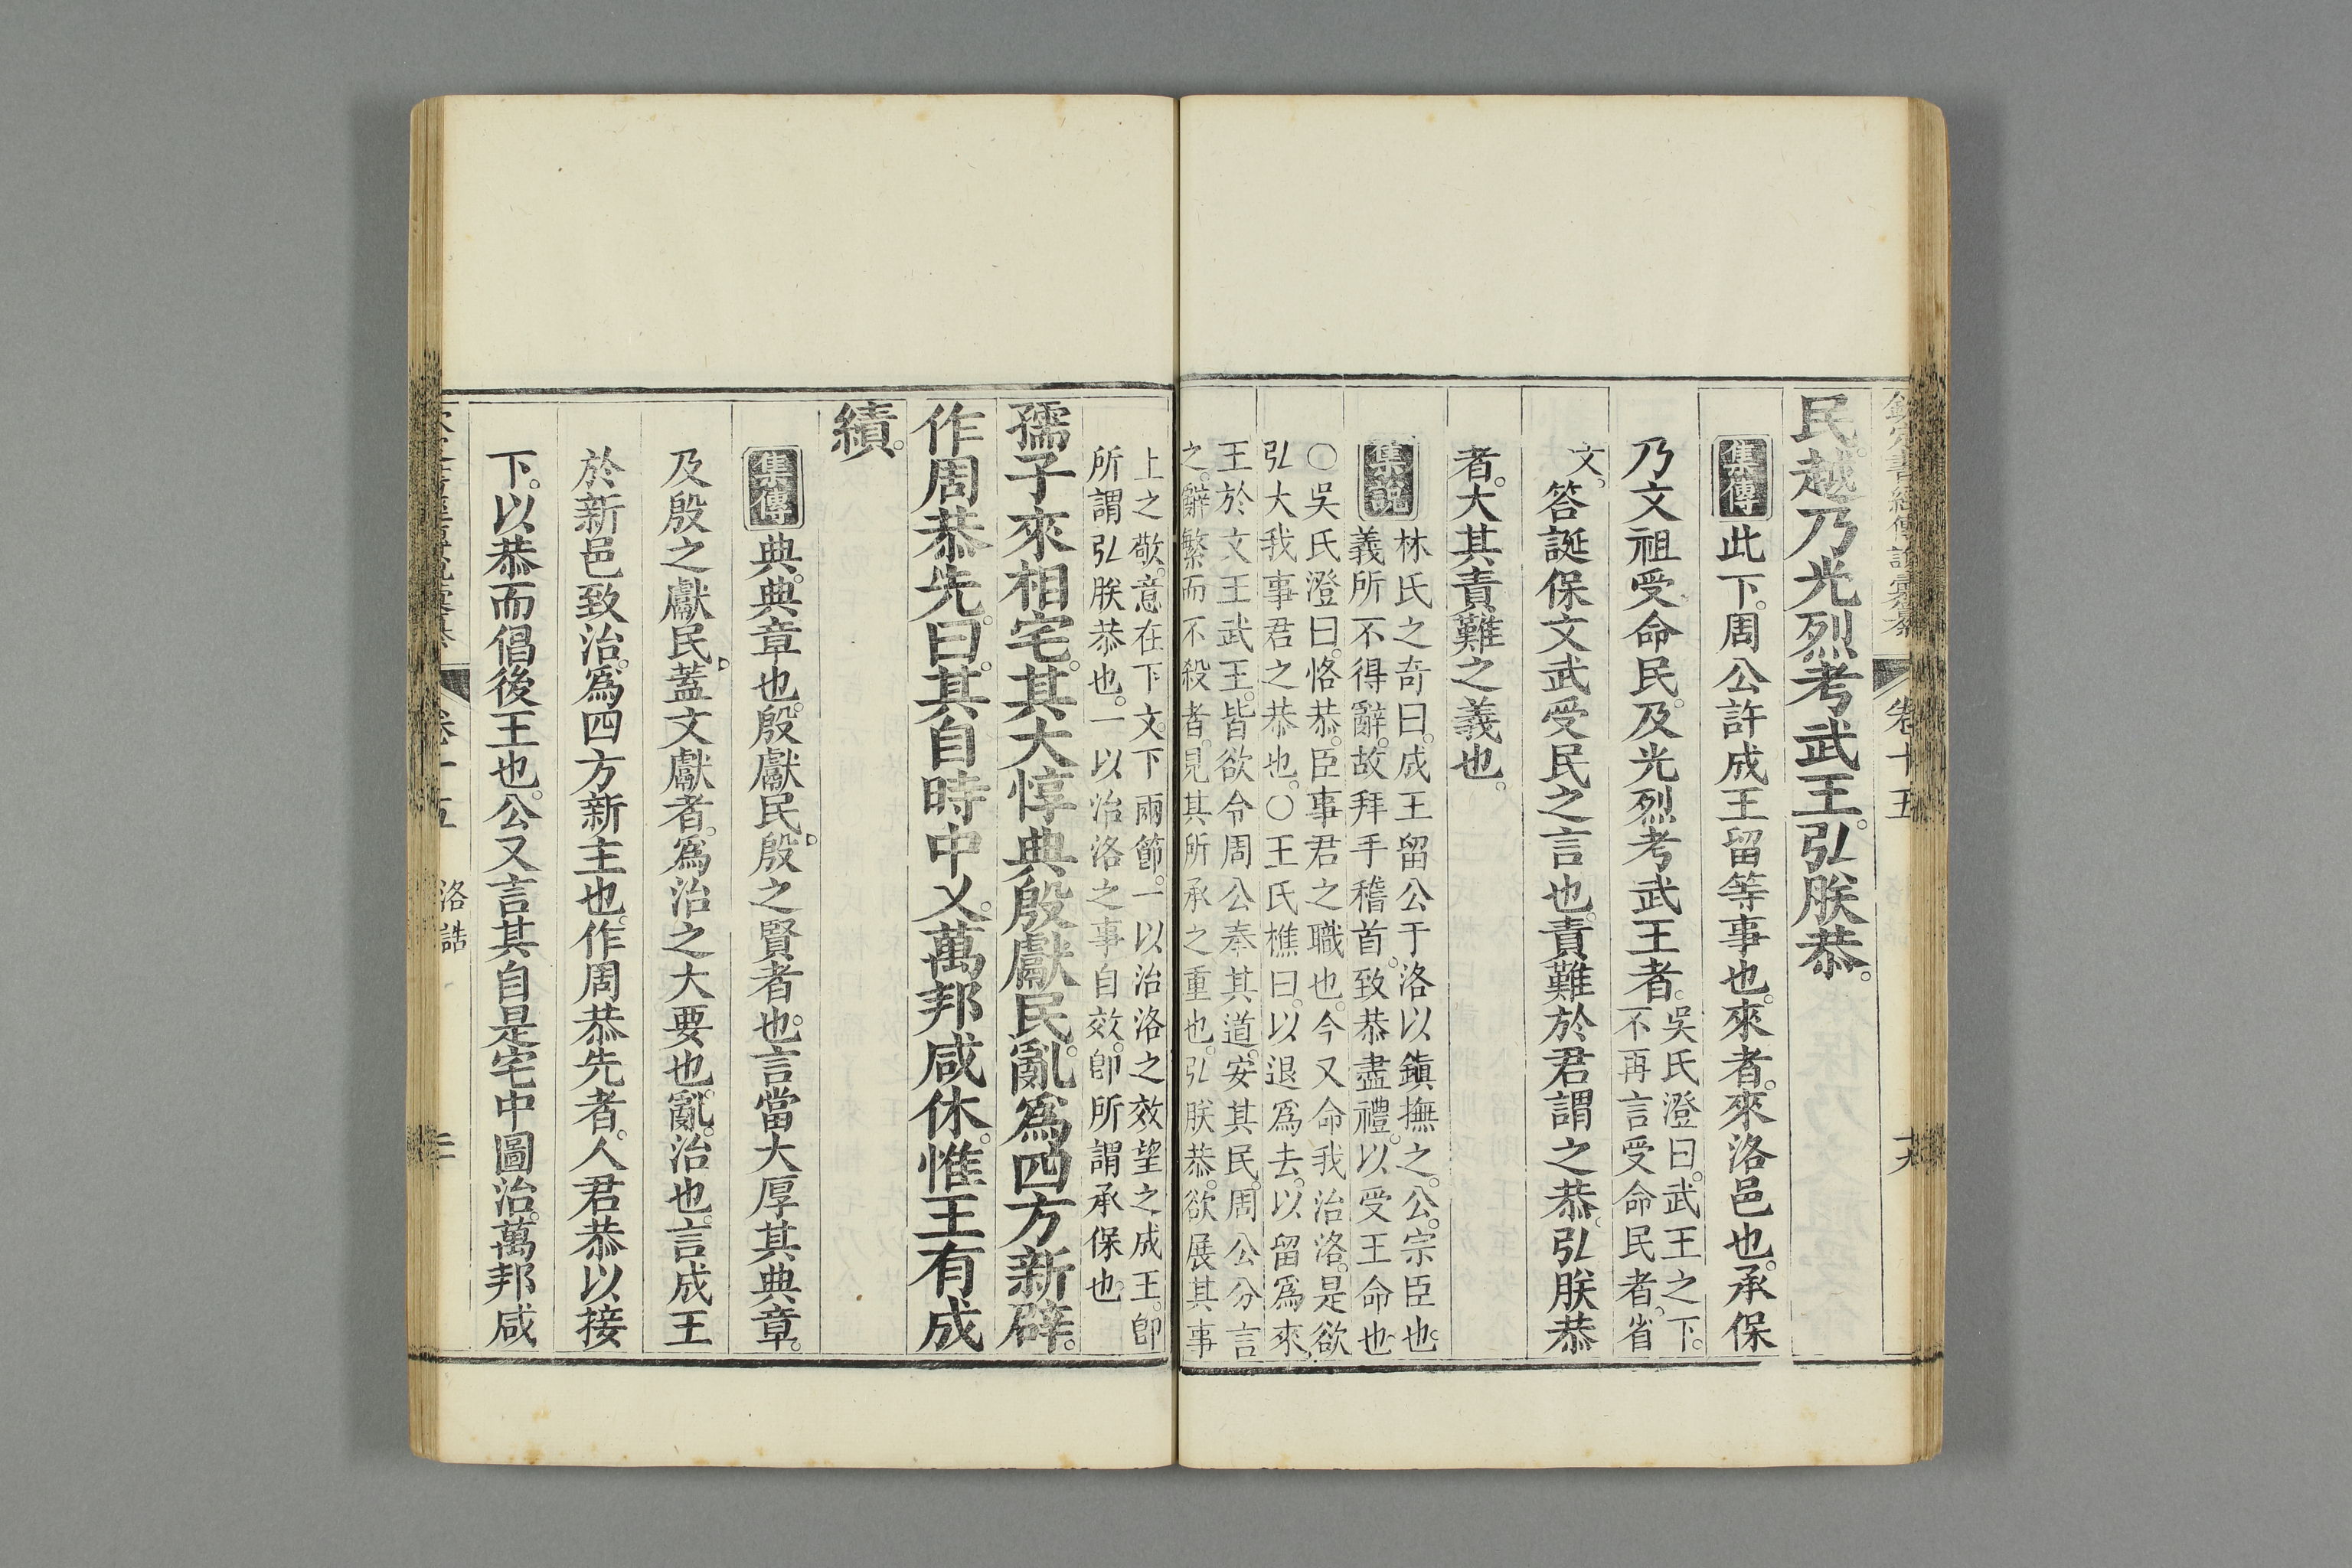 欽定書經傳說彙纂 卷十五
民。越乃光烈考武王。弘朕恭。
集傳 此下。周公許成王留等事也。來者。來洛邑也。承保
乃文祖受命民。及光烈考武王者。
吳氏澄曰。武王之下。
不再言受命民者。省
文。
答誕保文武受民之言也。責難於君謂之恭。弘朕恭
者。大其責難之義也。
集說
林氏之奇曰。成王留公于洛以鎮撫之。公宗臣也。
義所不得辭。故拜手稽首。致恭盡禮。以受王命也。
○吳氏澄曰。恪恭。臣事君之職也。今又命我治洛。是欲
弘大我事君之恭也。○王氏樵曰。以退爲去。以留爲來。
王於文王武王。皆欲令周公奉其道。安其民。周公分言
之。辭繁而不殺者。見其所承之重也。弘朕恭。欲展其事
上之敬。意在下文。下兩節。一以治洛之效望之成王。卽
所謂弘朕恭也。一以治洛之事自效。卽所謂承保也。
孺子來相宅。其大惇典殷獻民。亂爲四方新辟。
作周恭先。曰。其自時中乂。萬邦咸休。惟王有成
績。
集傳 典。典章也。殷獻民。殷之賢者也。言當大厚其典章。
及殷之獻民。蓋文獻者。爲治之大要也。亂。治也。言成王
於新邑致治。爲四方新主也。作周恭先者。人君恭以接
下。以恭而倡後王也。公又言其自是宅中圖治。萬邦咸
卷十五 洛誥